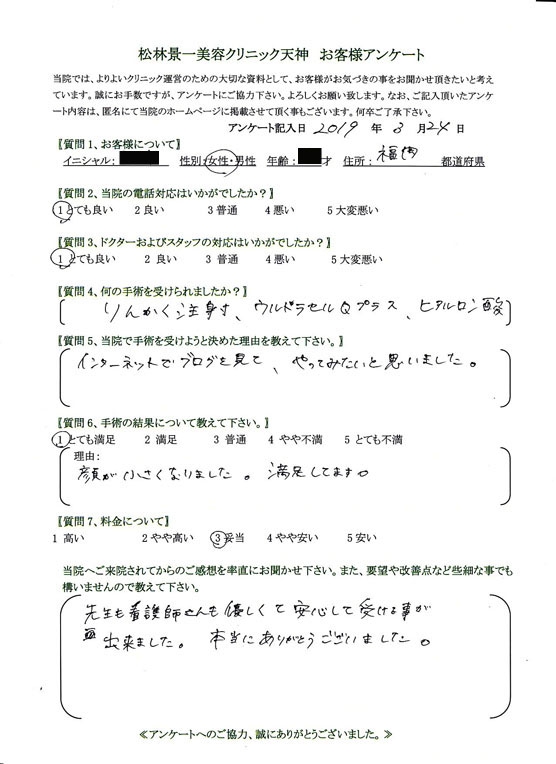 松林景一美容クリニック天神　お客様アンケート
当院では、よりよいクリニック運営のための大切な資料として、お客様がお気づきの事をお聞かせ頂きたいと考え
ています。誠にお手数ですが、アンケートにご協力下さい。よろしくお願い致します。なお、ご記入頂いたアンケ
ート内容は、匿名にて当院のホームページに掲載させて頂く事もございます。何卒ご了承下さい。
アンケート記入日 2019 年 3 月 24 日
〖質問1、お客様について〗
イニシャル： 性別：女性・男性 年齢： 才 住所： 福岡 都道府県
〖質問2、当院の電話対応はいかがでしたか？〗
1 とても良い 2 良い 3 普通 4 悪い 5 大変悪い
〖質問3、ドクターおよびスタッフの対応はいかがでしたか？〗
1 とても良い 2 良い 3 普通 4 悪い 5 大変悪い
〖質問4、何の手術を受けられましたか？〗
りんかく注射、ウルトラセルQプラス、ヒアルロン酸
〖質問5、当院で手術を受けようと決めた理由を教えて下さい。〗
インターネットでブログを見て、やってみたいと思いました。
〖質問6、手術の結果について教えて下さい。〗
1 とても満足 2 満足 3 普通 4 やや不満 5 とても不満
理由：
顔が小さくなりました。満足してます。
〖質問7、料金について〗
1 高い 2 やや高い 3 妥当 4 やや安い 5 安い
当院へご来院されてからのご感想を率直にお聞かせ下さい。また、要望や改善点など些細な事でも
構いませんので教えて下さい。
先生も看護師さんも優しくて安心して受ける事が
出来ました。本当にありがとうございました。
≪アンケートへのご協力、誠にありがとうございました。≫